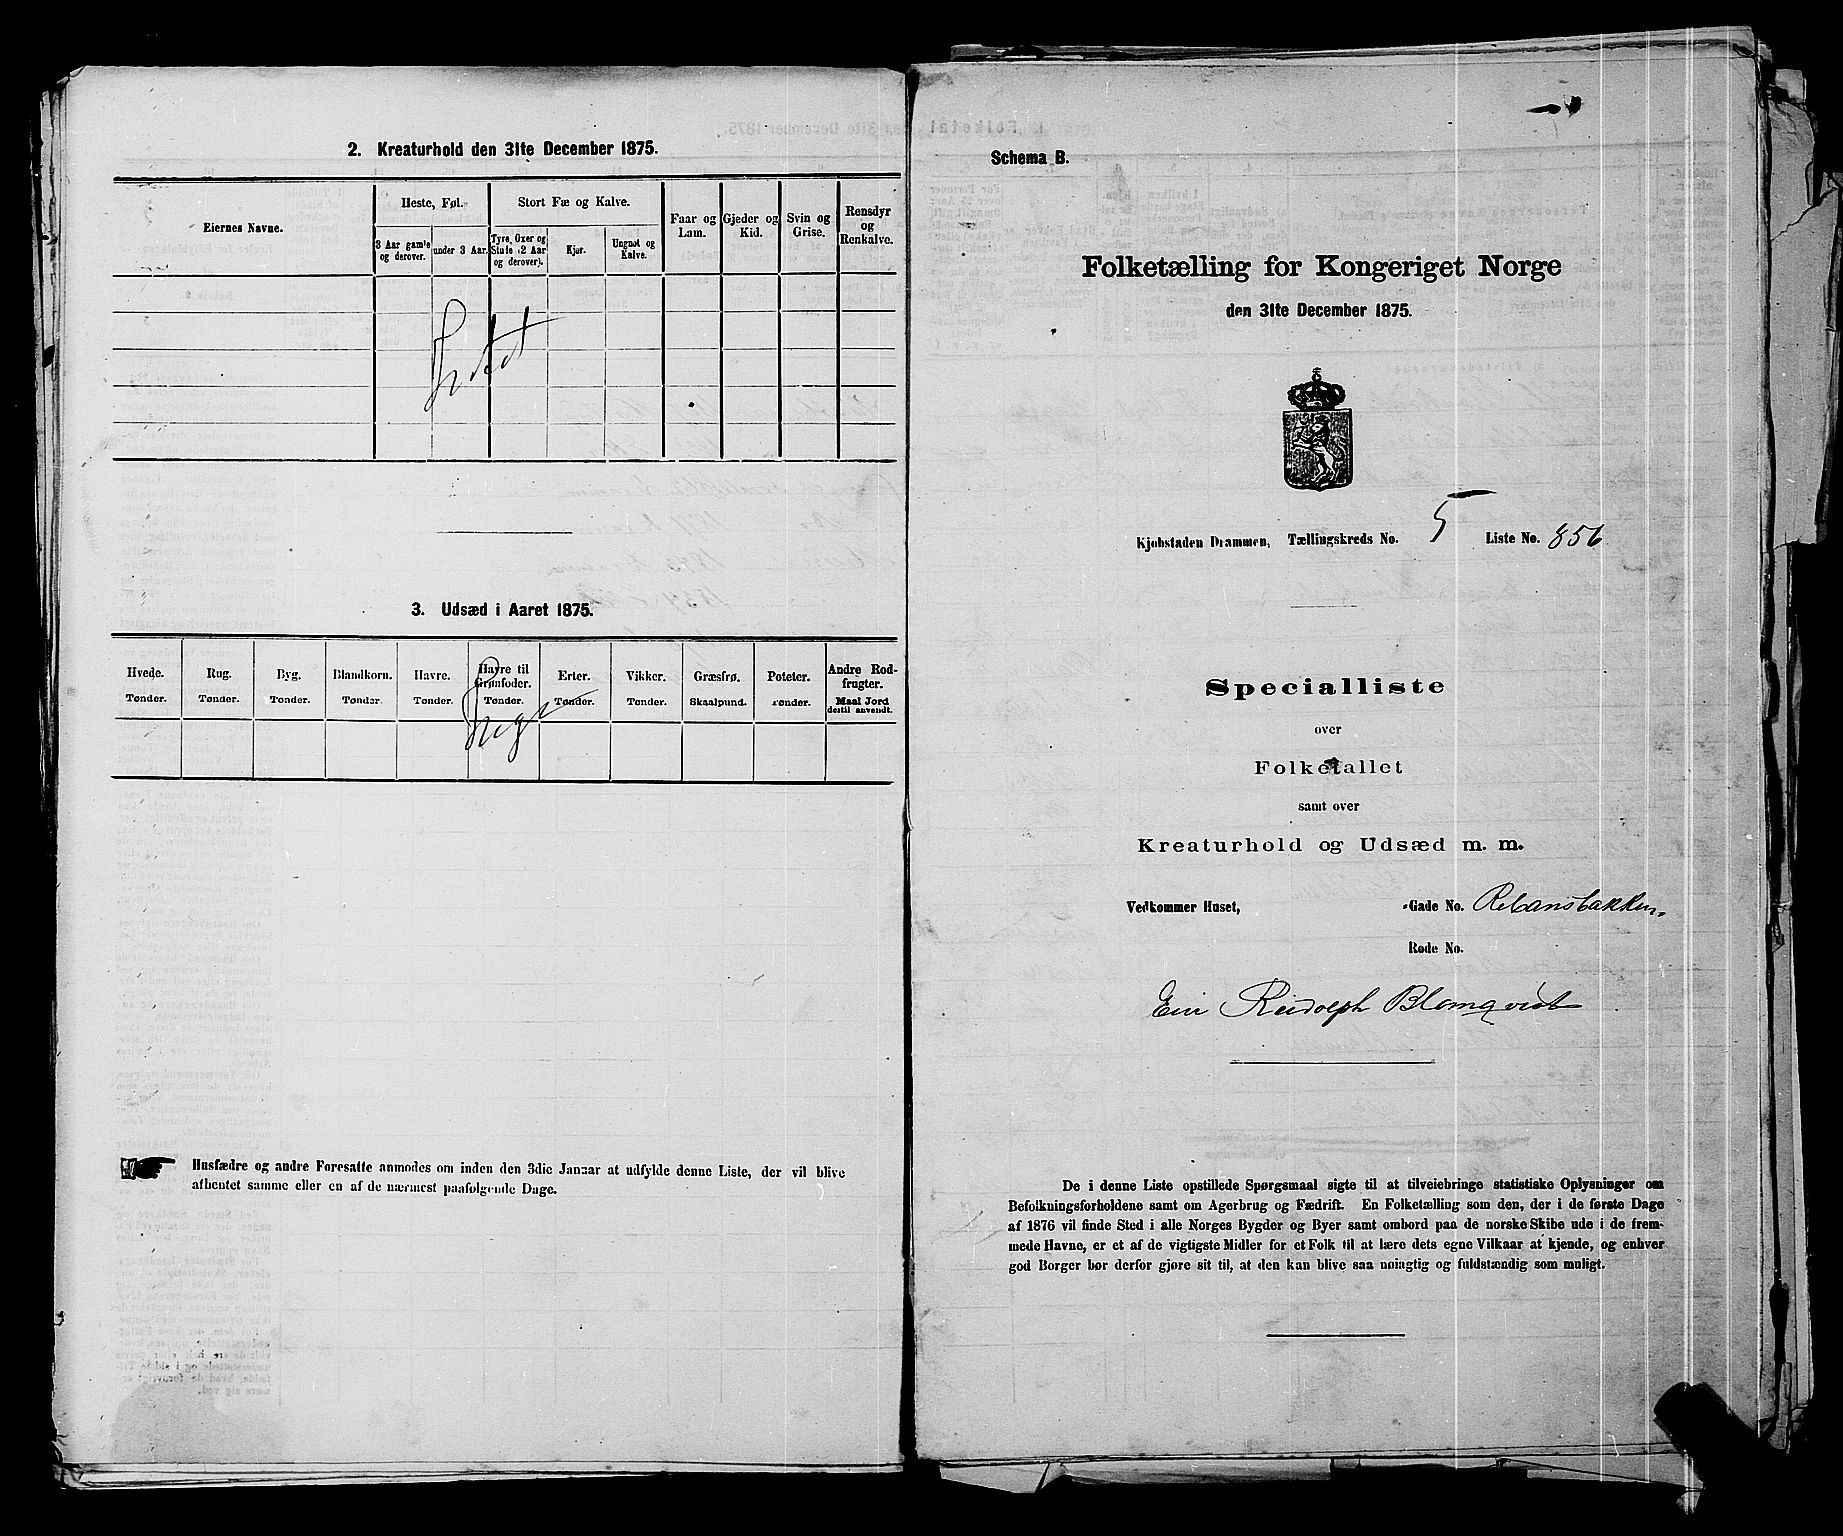 2. Kreaturhold den 31te December 1875.
Eiernes Navne.
Heste, Føl.
Stort Fæ og Kalve.
Faar og Lam.
Gjeder og Kid.
Svin og Grise.
Rensdyr og Renkalve.
3 Aar gamle og derover.
under 3 Aar.
Tyre, Oxer og Stute (2 Aar og derover).
Kjør.
Ungnøt og Kalve.
3. Udsæd i Aaret 1875.
Hvede. Tønder.
Rug. Tønder.
Byg. Tønder.
Blandkorn. Tønder.
Havre. Tønder.
Havre til Grønfoder. Tønder.
Erter. Tønder.
Vikker. Tønder.
Græsfrø. Skaalpund.
Poteter. Tønder.
Andre Rodfrugter. Maal Jord dertil anvendt.
Husfædre og andre Foresatte anmodes om inden den 3die Januar at udfylde denne Liste, der vil blive
afhentet samme eller en af de nærmest paafølgende Dage.
Schema B.
Folketælling for Kongeriget Norge
den 31te December 1875.
Kjøbstaden Drammen, Tællingskreds No. 5 Liste No. 856
Specialliste
over
Folketallet
samt over
Kreaturhold og Udsæd m. m.
Vedkommer Huset, -Gade No. Rebansbakken.
Rode No.
Eier Rudolph Blomqvist
De i denne Liste opstillede Spørgsmaal sigte til at tilveiebringe statistiske Oplysninger om
Befolkningsforholdene samt om Agerbrug og Fædrift. En Folketælling som den, der i de første Dage
af 1876 vil finde Sted i alle Norges Bygder og Byer samt ombord paa de norske Skibe ude i de frem-
mede Havne, er et af de vigtigste Midler for et Folk til at lære dets egne Vilkaar at kjende, og enhver
god Borger bør derfor gjøre sit til, at den kan blive saa nøiagtig og fuldstændig som muligt.